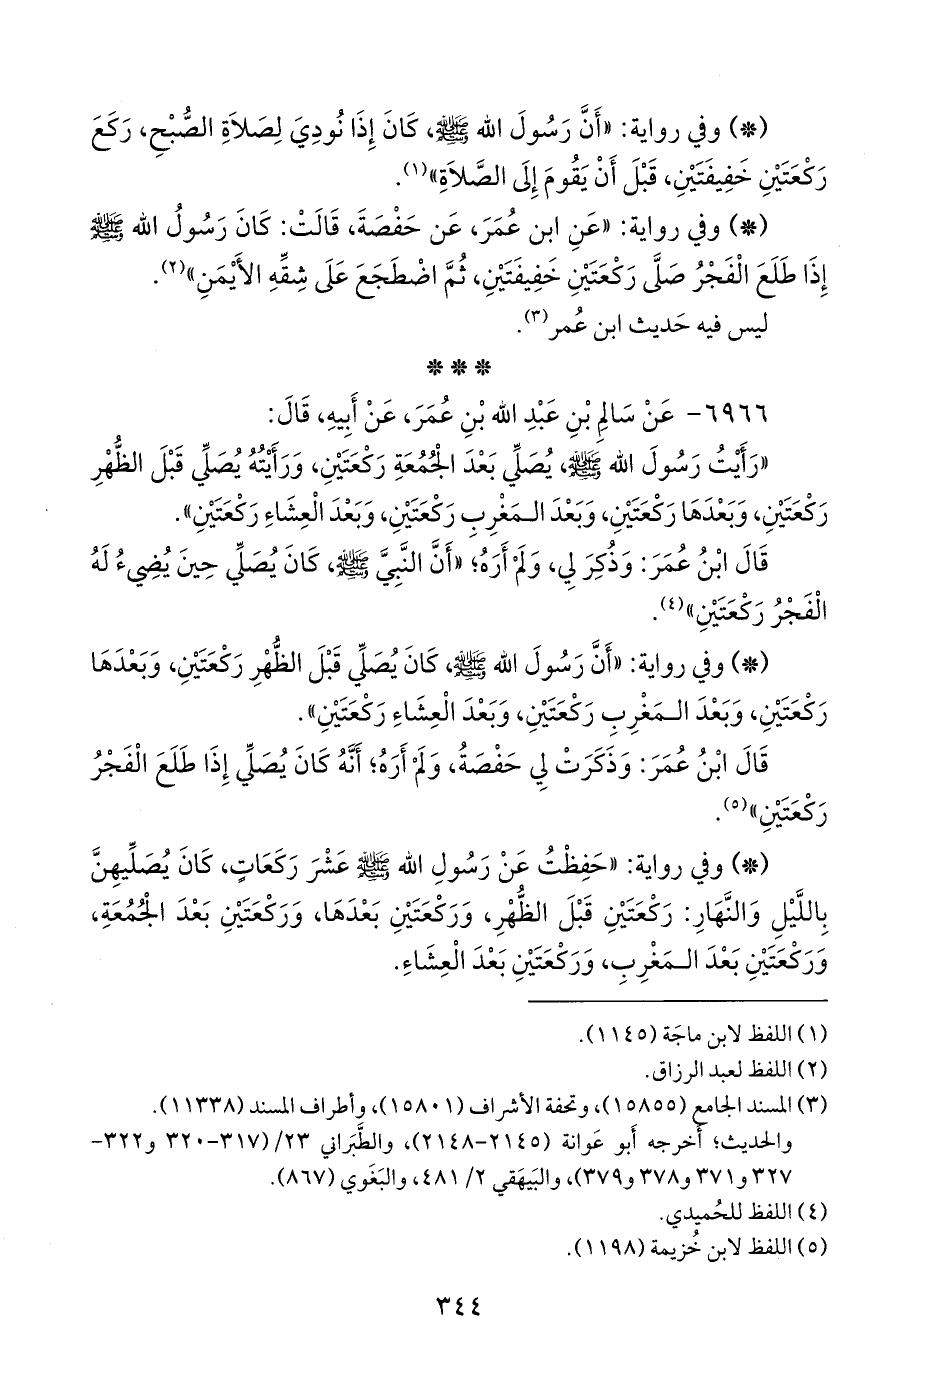 (*) وفي رواية: «أَنَّ رَسُولَ الله ﷺ، كَانَ إِذَا نُودِيَ لِصَلاَةِ الصُّبْحِ، رَكَعَ
رَكْعَتَيْنِ خَفِيفَتَيْنِ، قَبْلَ أَنْ يَقُومَ إِلَى الصَّلاَةِ»(١).
(*) وفي رواية: «عَنِ ابن عُمَرَ، عَن حَفْصَةَ، قَالَتْ: كَانَ رَسُولُ الله ﷺ
إِذَا طَلَعَ الْفَجْرُ صَلَّى رَكْعَتَيْنِ خَفِيفَتَيْنِ، ثُمَّ اضْطَجَعَ عَلَى شِقِّهِ الأَيْمَنِ»(٢).
ليس فيه حَديث ابن عُمر(٣).
* * *
٦٩٦٦- عَنْ سَالِمِ بْنِ عَبْدِ الله بْنِ عُمَرَ، عَنْ أَبِيهِ، قَالَ:
«رَأَيْتُ رَسُولَ الله ﷺ، يُصَلِّي بَعْدَ الْجُمُعَةِ رَكْعَتَيْنِ، وَرَأَيْتُهُ يُصَلِّي قَبْلَ الظُّهْرِ
رَكْعَتَيْنِ، وَبَعْدَهَا رَكْعَتَيْنِ، وَبَعْدَ الـمَغْرِبِ رَكْعَتَيْنِ، وَبَعْدَ الْعِشَاءِ رَكْعَتَيْنِ».
قَالَ ابْنُ عُمَرَ: وَذُكِرَ لِي، وَلَمْ أَرَهُ؛ «أَنَّ النَّبِيَّ ﷺ، كَانَ يُصَلِّي حِينَ يُضِيءُ لَهُ
الْفَجْرُ رَكْعَتَيْنِ»(٤).
(*) وفي رواية: «أَنَّ رَسُولَ الله ﷺ، كَانَ يُصَلِّي قَبْلَ الظُّهْرِ رَكْعَتَيْنِ، وَبَعْدَهَا
رَكْعَتَيْنِ، وَبَعْدَ الـمَغْرِبِ رَكْعَتَيْنِ، وَبَعْدَ الْعِشَاءِ رَكْعَتَيْنِ».
قَالَ ابْنُ عُمَرَ: وَذَكَرَتْ لِي حَفْصَةُ، وَلَمْ أَرَهُ؛ أَنَّهُ كَانَ يُصَلِّي إِذَا طَلَعَ الْفَجْرُ
رَكْعَتَيْنِ»(٥).
(*) وفي رواية: «حَفِظْتُ عَنْ رَسُولِ الله ﷺ عَشْرَ رَكَعَاتٍ، كَانَ يُصَلِّيهِنَّ
بِاللَّيْلِ وَالنَّهَارِ: رَكْعَتَيْنِ قَبْلَ الظُّهْرِ، وَرَكْعَتَيْنِ بَعْدَهَا، وَرَكْعَتَيْنِ بَعْدَ الْجُمُعَةِ،
وَرَكْعَتَيْنِ بَعْدَ الـمَغْرِبِ، وَرَكْعَتَيْنِ بَعْدَ الْعِشَاءِ.
(١) اللفظ لابن ماجَة (١١٤٥).
(٢) اللفظ لعبد الرزاق.
(٣) المسند الجامع (١٥٨٥٥)، وتحفة الأشراف (١٥٨٠١)، وأطراف المسند (١١٣٣٨).
والحديث؛ أَخرجه أَبو عَوانة (٢١٤٥-٢١٤٨)، والطَّبَراني ٢٣/ (٣١٧-٣٢٠ و٣٢٢-
٣٢٧ و٣٧١ و٣٧٨ و٣٧٩)، والبَيهَقي ٢/ ٤٨١، والبَغَوي (٨٦٧).
(٤) اللفظ للحُميدي.
(٥) اللفظ لابن خُزيمة (١١٩٨).
٣٤٤